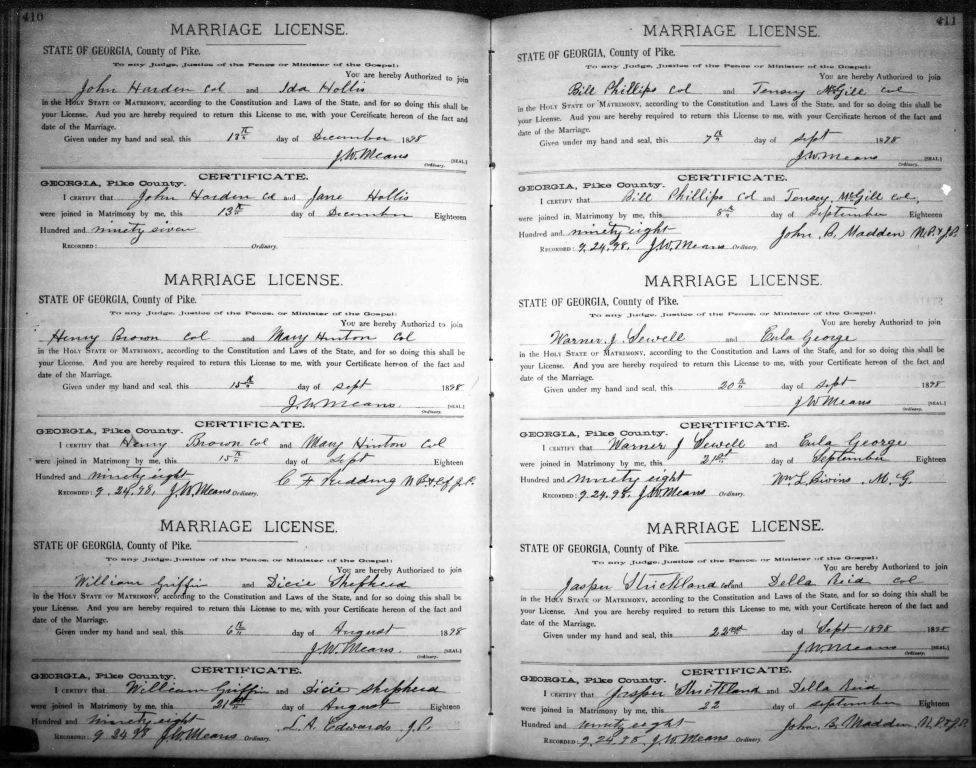 410
MARRIAGE LICENSE.
STATE OF GEORGIA, County of Pike.
To any Judge, Justice of the Peace or Minister of the Gospel:
You are hereby Authorized to join
John Harden col and Ida Hollis
in the HOLY STATE OF MATRIMONY, according to the Constitution and Laws of the State, and for so doing this shall be
your License. And you are hereby required to return this License to me, with your Certificate hereon of the fact and
date of the Marriage.
Given under my hand and seal, this 13th day of December 1898
J.W. Means [SEAL.]
Ordinary.
CERTIFICATE.
GEORGIA, Pike County.
I CERTIFY that John Harden Cd and Jane Hollis
were joined in Matrimony by me, this 13th day of December Eighteen
Hundred and ninety seven
RECORDED: Ordinary.
MARRIAGE LICENSE.
STATE OF GEORGIA, County of Pike.
To any Judge, Justice of the Peace, or Minister of the Gospel:
You are hereby Authorized to join
Henry Brown Col and Mary Hinton Col
in the HOLY STATE OF MATRIMONY, according to the Constitution and Laws of the State, and for so doing this shall be
your License. And you are hereby required to return this License to me, with your Certificate hereon of the fact and
date of the Marriage.
Given under my hand and seal, this 15th day of Sept 1898
J.W. Means. [SEAL.]
Ordinary.
CERTIFICATE.
GEORGIA, Pike County.
I CERTIFY that Henry Brown Col and Mary Hinton Col
were joined in Matrimony by me, this 15th day of Sept Eighteen
Hundred and ninety eight C F Redding
RECORDED: 9.24.98. J.W. Means Ordinary.
MARRIAGE LICENSE.
STATE OF GEORGIA, County of Pike.
To any Judge, Justice of the Peace, or Minister of the Gospel:
You are hereby Authorized to join
William Griffin and Dicie Shepherd
in the HOLY STATE OF MATRIMONY, according to the Constitution and Laws of the State, and for so doing this shall be
your License. And you are hereby required to return this License to me, with your Certificate hereof of the fact and
date of the Marriage.
Given under my hand and seal, this 6th day of August 1898
J.W. Means. [SEAL.]
Ordinary.
CERTIFICATE.
GEORGIA, Pike County.
I CERTIFY that William Griffin and Dicie Shepherd
were joined in Matrimony by me, this 21st day of August Eighteen
Hundred and ninety eight L.A. Edwards J.P.
RECORDED: 9.24.98 J.W. Means Ordinary.
411
MARRIAGE LICENSE.
STATE OF GEORGIA, County of Pike.
To any Judge, Justice of the Peace or Minister of the Gospel:
You are hereby Authorized to join
Bill Phillips Col and Tensey McGill Col
in the HOLY STATE OF MATRIMONY, according to the Constitution and Laws of the State, and for so doing this shall be
your License. And you are hereby required to return this License to me, with your Certificate hereon of the fact and
date of the Marriage.
Given under my hand and seal, this 7th day of Sept 1898
J.W. Means [SEAL.]
Ordinary.
CERTIFICATE.
GEORGIA, Pike County.
I CERTIFY that Bill Phillips Col and Tensey McGill Col,
were joined in Matrimony by me, this 8th day of September Eighteen
Hundred and ninety eight John B. Madden N.P. & J.P.
RECORDED: 9.24.98. J.W. Means Ordinary.
MARRIAGE LICENSE.
STATE OF GEORGIA, County of Pike.
To any Judge, Justice of the Peace, or Minister of the Gospel:
You are hereby Authorized to join
Warner J. Sewell and Eula George
in the HOLY STATE OF MATRIMONY, according to the Constitution and Laws of the State, and for so doing this shall be
your License. And you are hereby required to return this License to me, with your Certificate hereon of the fact and
date of the Marriage.
Given under my hand and seal, this 20th day of Sept 1898
J.W. Means [SEAL.]
Ordinary.
CERTIFICATE.
GEORGIA, Pike County.
I CERTIFY that Warner J Sewell and Eula George
were joined in Matrimony by me, this 21st day of September Eighteen
Hundred and ninety eight Wm L. Bivins. M.G.
RECORDED: 9.24.98. J.W. Means Ordinary.
MARRIAGE LICENSE.
STATE OF GEORGIA, County of Pike.
To any Judge, Justice of the Peace, or Minister of the Gospel:
You are hereby Authorized to join
Jasper Strickland col and Della Reid Col
in the HOLY STATE OF MATRIMONY, according to the Constitution and Laws of the State, and for so doing this shall be
your License. And you are hereby required to return this License to me, with your Certificate hereon of the fact and
date of the Marriage.
Given under my hand and seal, this 22nd day of Sept 1898 1898
J.W. Means [SEAL.]
Ordinary.
CERTIFICATE.
GEORGIA, Pike County.
I CERTIFY that Jasper Strickland and Della Reid
were joined in Matrimony by me, this 22 day of september Eighteen
Hundred and ninety eight John B. Madden N.P. & J.P.
RECORDED: 9.24.98 J.W. Means Ordinary.